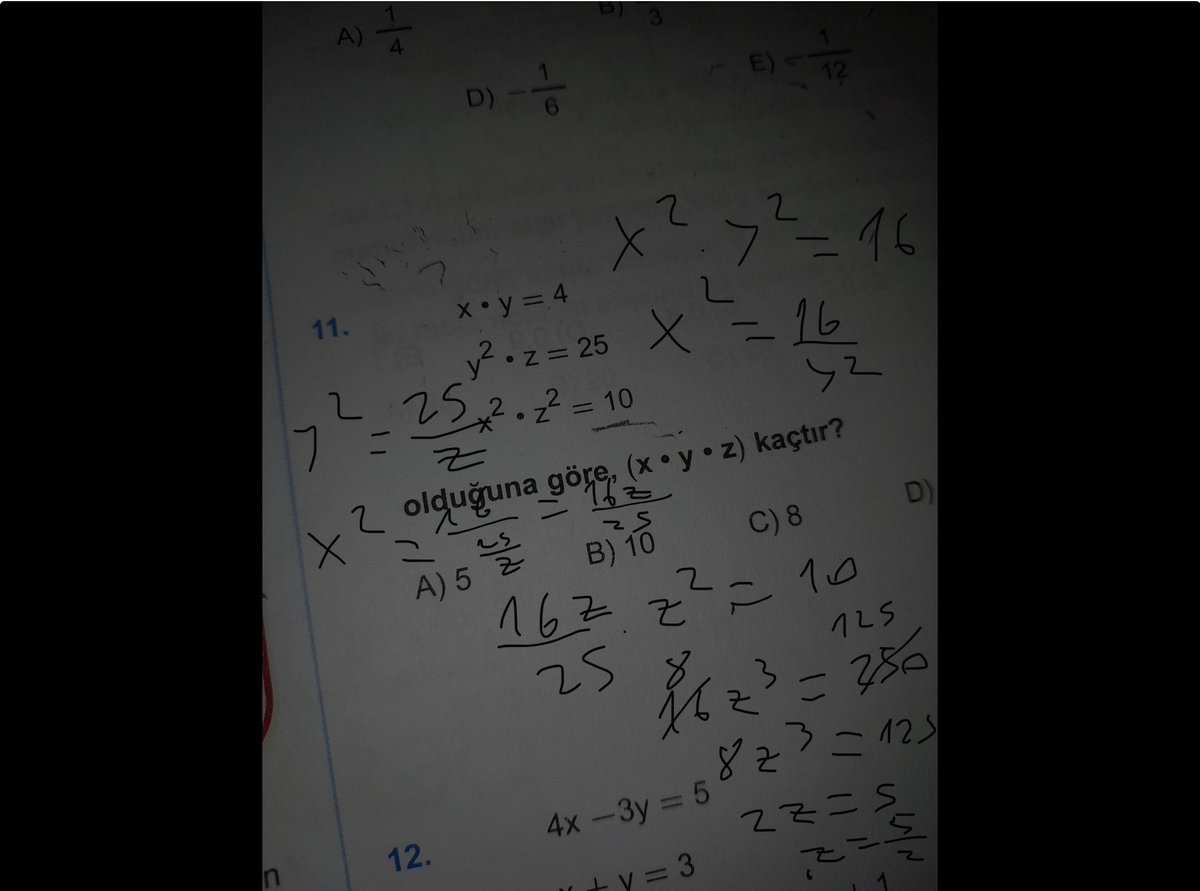 A) 1/4
3
D) -1/6
E) -1/12
x² . y² = 16
11.
x • y = 4
y² • z = 25
x² • z² = 10
x² = 16/y²
y² = 25/z
olduğuna göre, (x • y • z) kaçtır?
x² = 16/(25/z) = 16z/25
A) 5
B) 10
C) 8
D)
16z/25 . z² = 10
16z³ = 250
8
125
8z³ = 125
2z = 5
z = 5/2
12.
4x – 3y = 5
+ y = 3
n